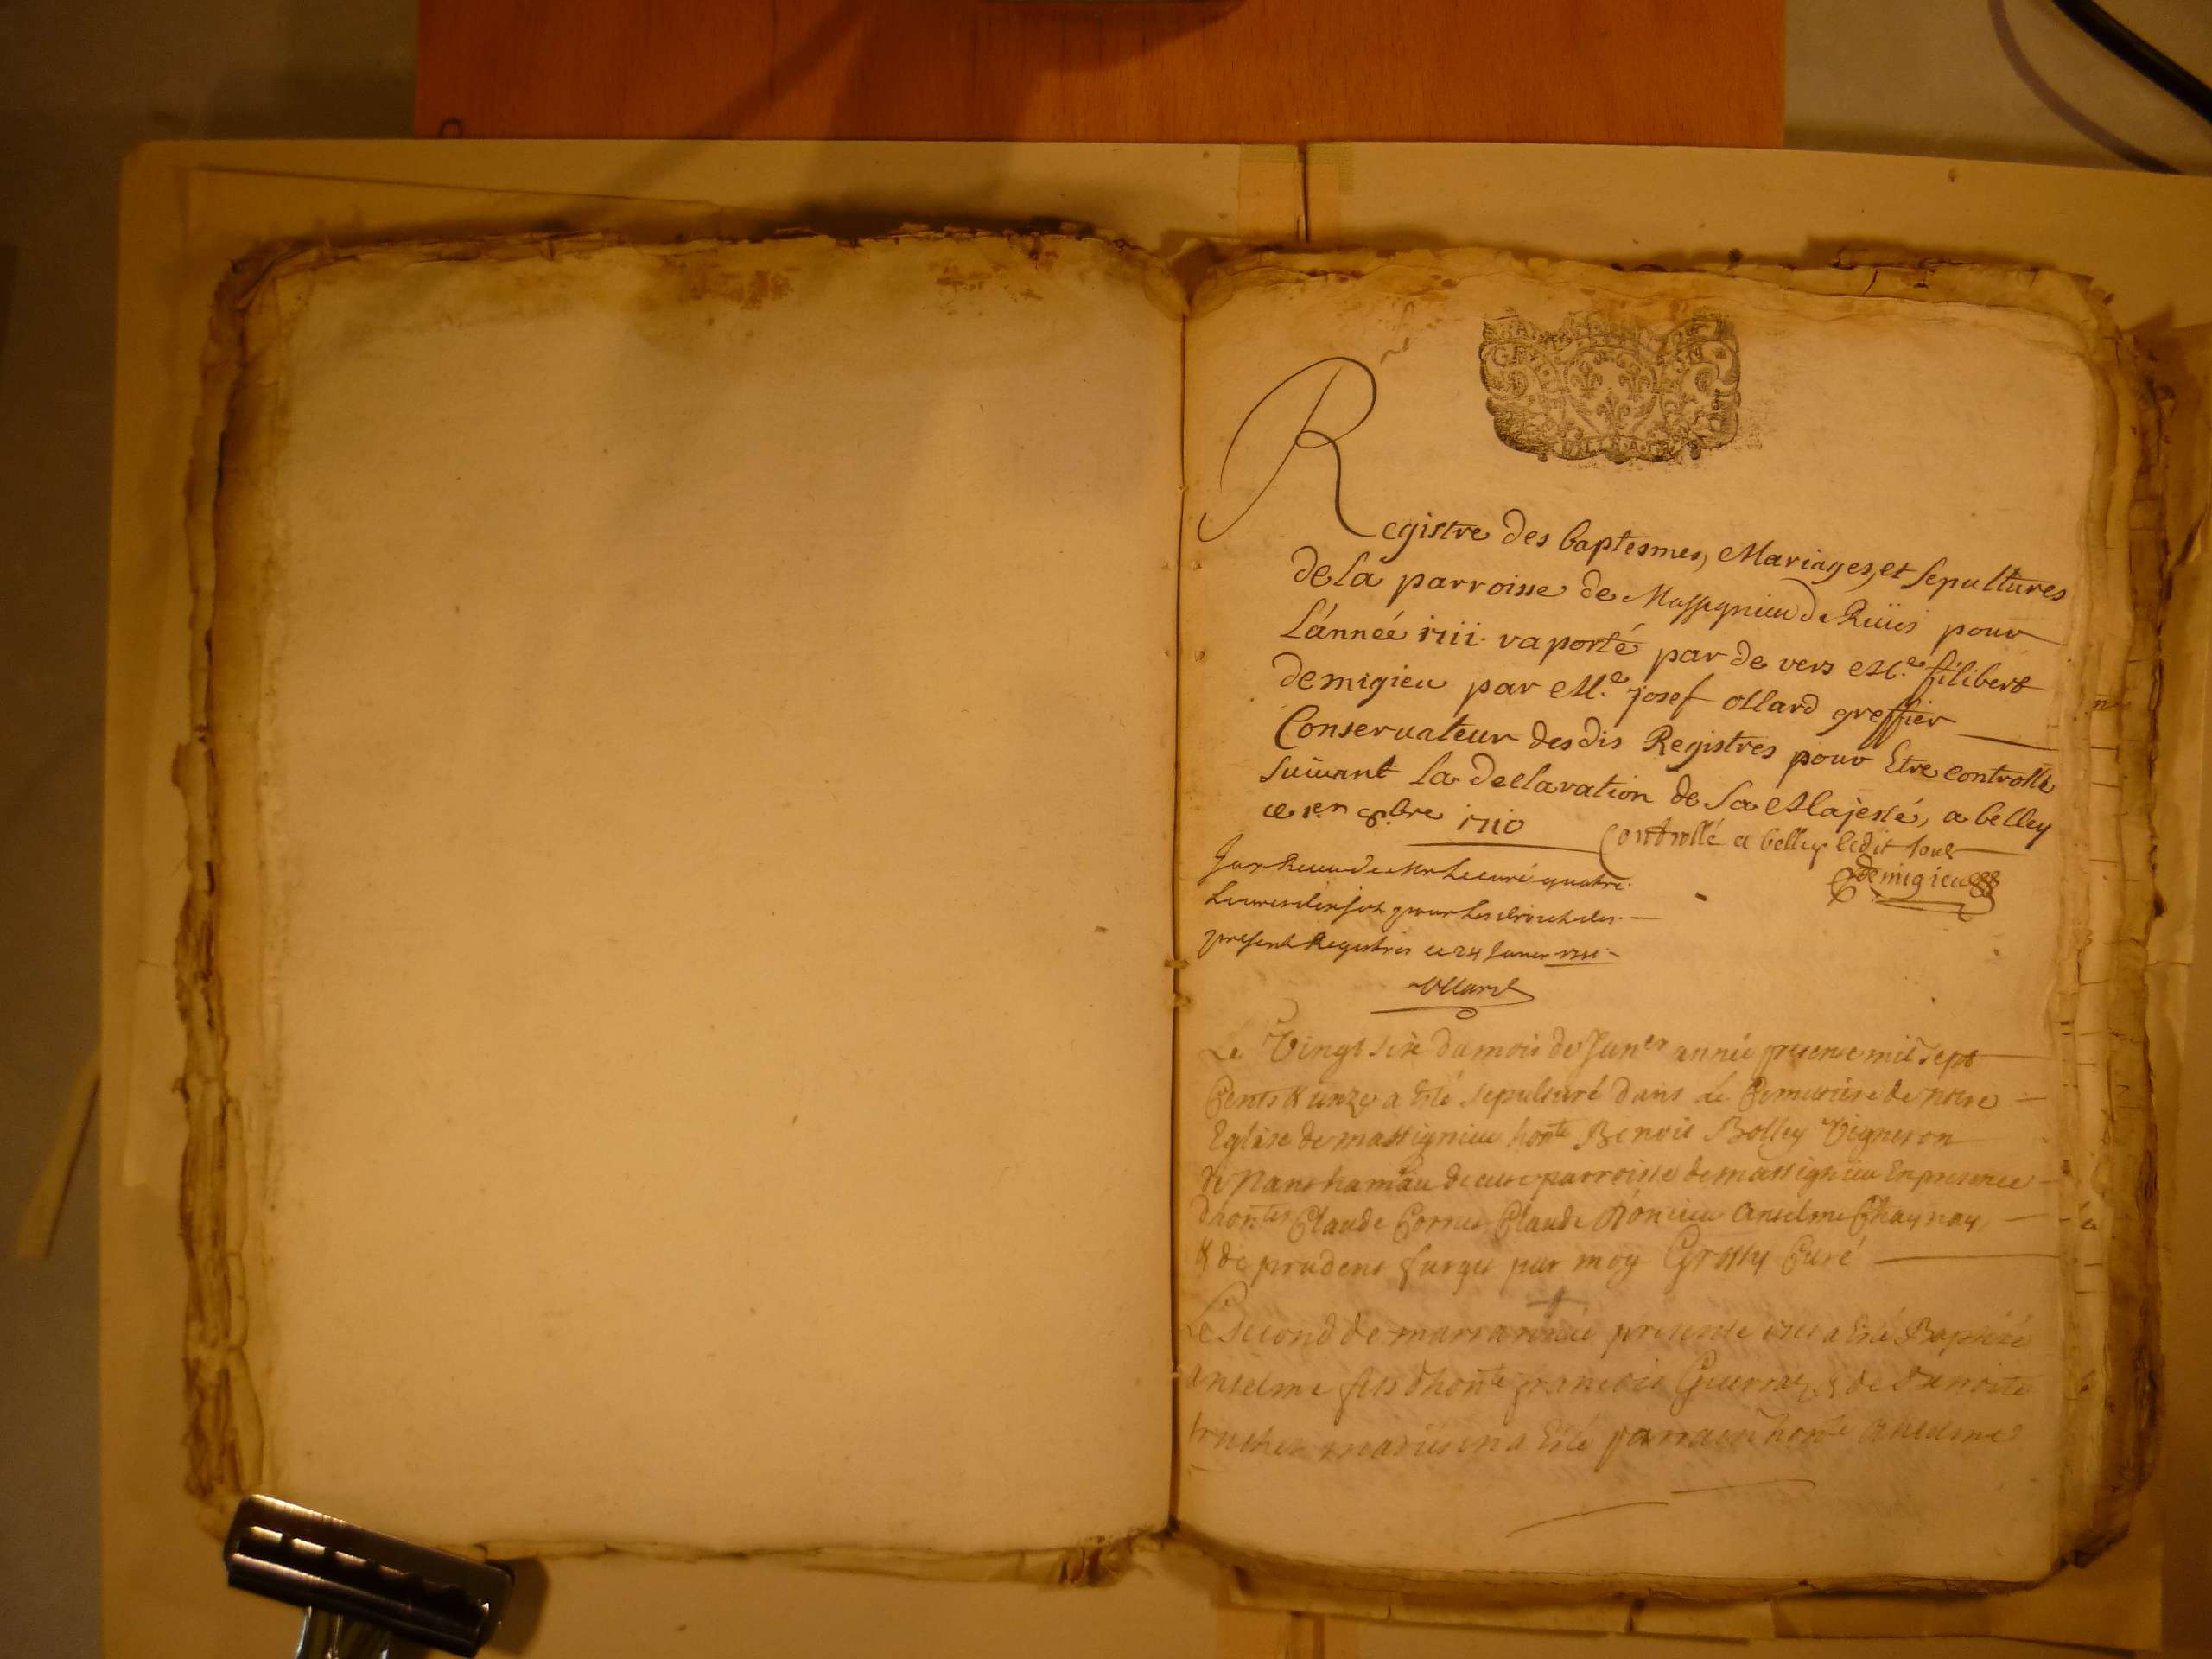 Registre des baptesmes, Mariages, et sepultures
de la parroisse de Massignieu de Riües pour
L'année 1711. va porté par de vers Me. filibert
demigieu par Me. josef ollard greffier
Conservateur desdis Registres pour Etre controllé
suivant la declaration de Sa Majesté, a belley
ce 1er 8.bre 1710
Controllé a belley ledit jour
Demigieu
Jay Receu de Mr Le curé quatre
Livres dix sols pour Les droict des
present Registres ce 24 Janer 1711
Ollard
Le Vingt sixe du mois de Janer année presente mil sept
Cents & unze a Esté sepulturé dans Le Cemettiere de nostre
Eglise de massignieu honte Benoit Bolley Vigneron
de Nant hamau de cette parroisse de massignieu En presence
d'hontes Claude Cornu Claude Anselme Chaynay
& de prudent par moy Grossy Curé
Le Second de mars année presente 1711 a Esté Baptizé
anselme fils d'honte françois Guerraz & de Benoite
mariés en a Esté parrain honte anselme